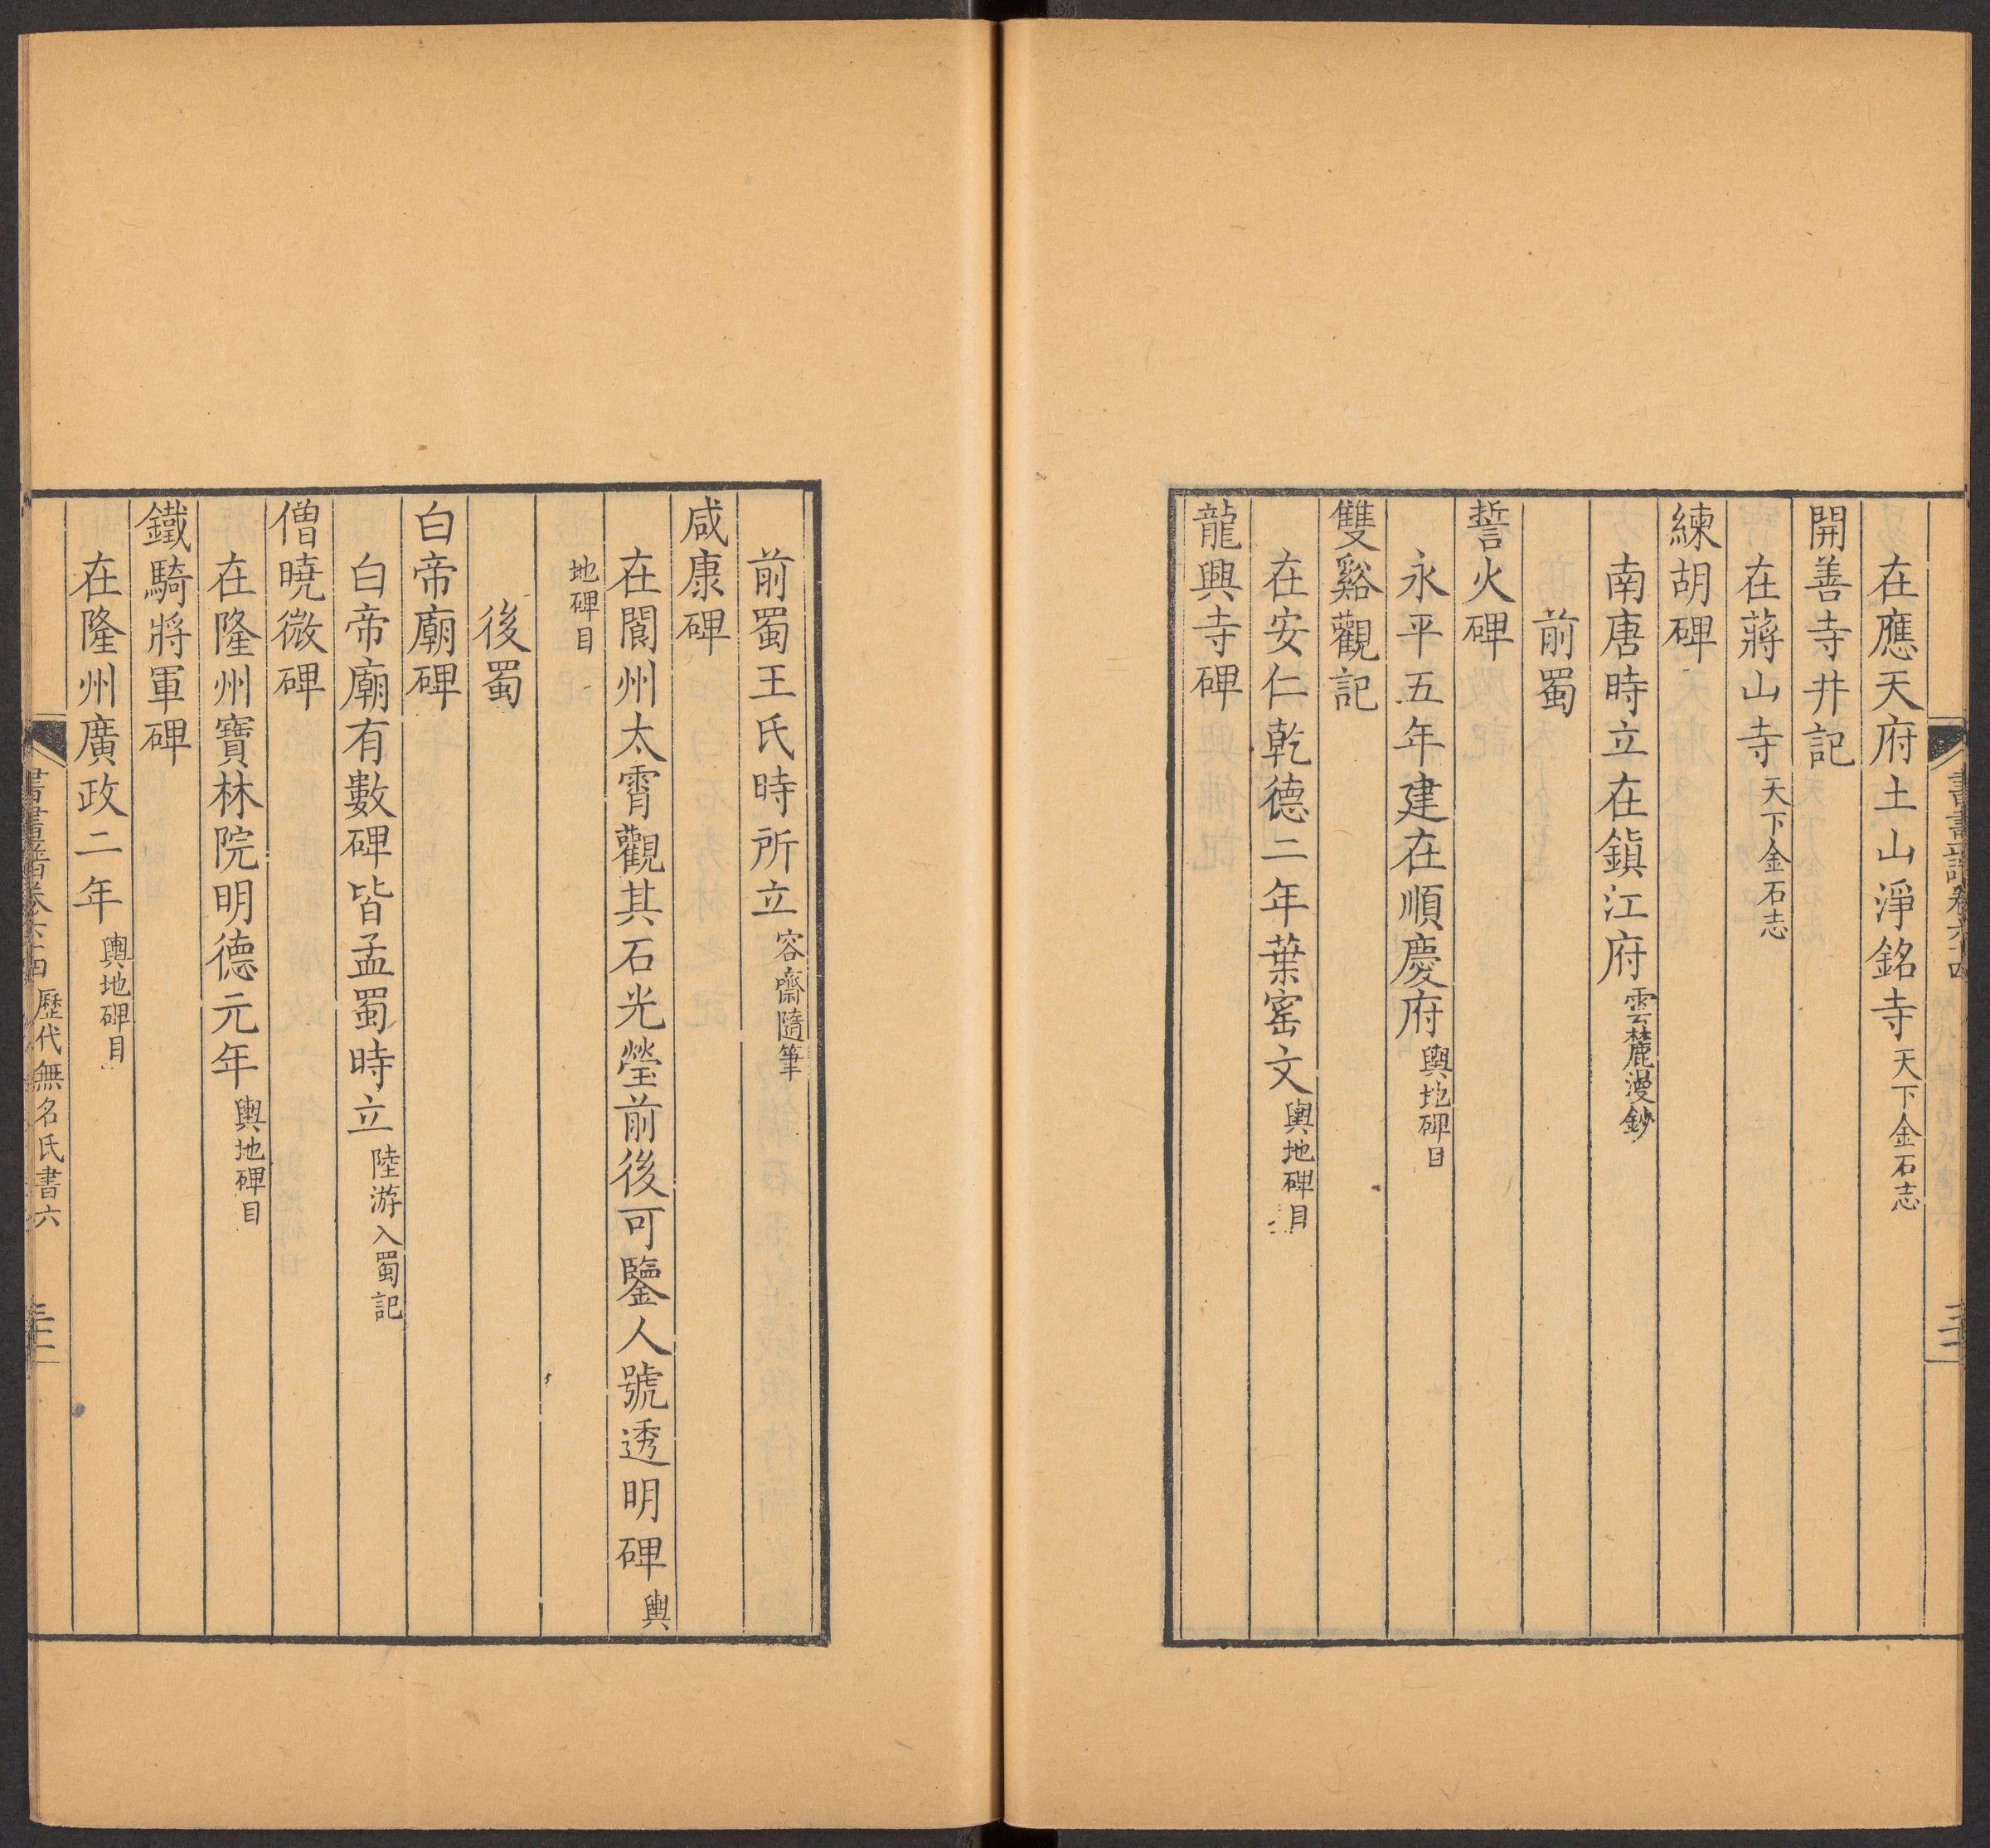 在應天府土山淨銘寺天下金石志
開善寺井記
在蔣山寺天下金石志
練胡碑
南唐時立在鎮江府雲麓漫鈔
前蜀
誓火碑
永平五年建在順慶府輿地碑目
雙谿觀記
在安仁乾德二年葉窰文輿地碑目
龍興寺碑
前蜀王氏時所立容齋隨筆
咸康碑
在閬州太霄觀其石光瑩前後可鑒人號透明碑輿
地碑目
後蜀
白帝廟碑
白帝廟有數碑皆孟蜀時立陸游入蜀記
僧曉微碑
在隆州寶林院明德元年輿地碑目
鐵騎將軍碑
在隆州廣政二年輿地碑目
書畫譜卷六十四 歷代無名氏書六